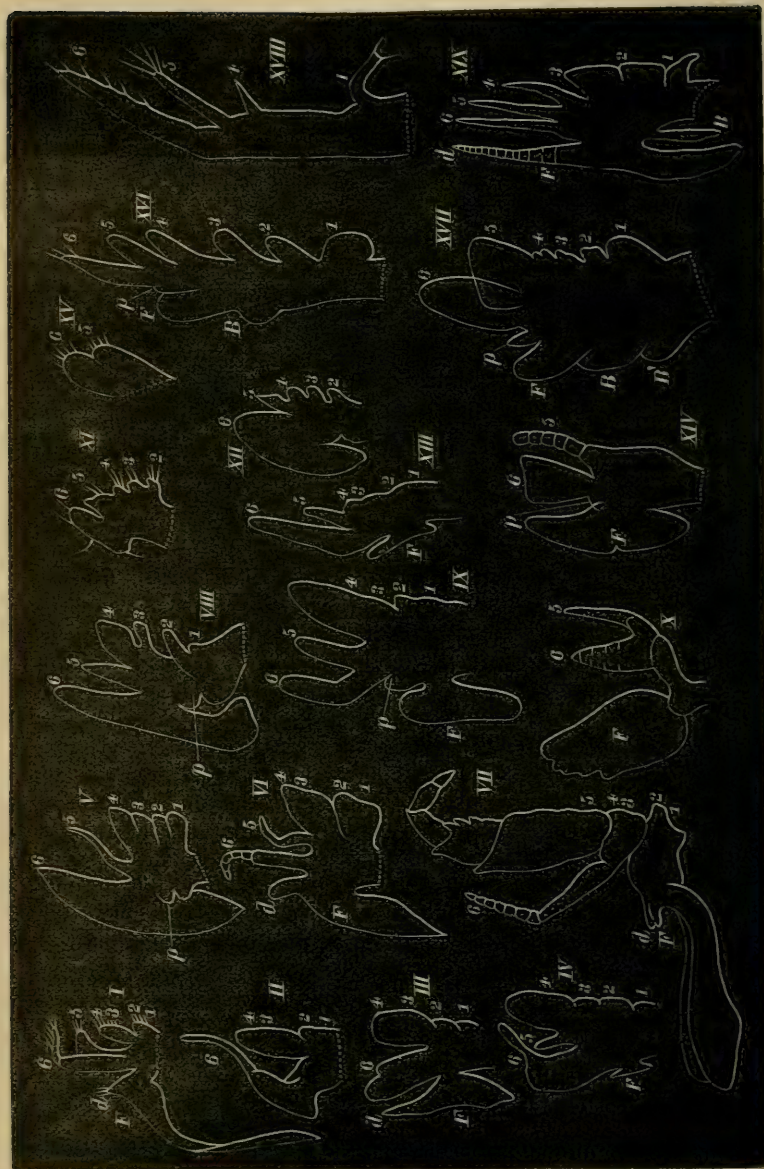 I
6
5
4
3
2
1
d
F
II
6
4
3
2
1
III
6
4
3
2
1
d
F
IV
6
5
4
3
2
1
F
V
6
5
4
3
2
1
p
VI
6
5
4
3
2
1
d
F
VII
6
5
4
3
2
1
d
F
VIII
6
5
4
3
2
1
p
IX
6
5
4
3
2
1
p
F
X
6
5
F
XI
6
5
4
3
2
XII
6
5
4
3
2
XIII
6
5
4
3
2
1
F
XIV
p
6
5
F
XV
6
5
XVI
6
5
4
3
2
1
p
F
B
XVII
6
5
4
3
2
1
p
F
B
B'
XVIII
6
5
4
1
XIX
d
6
5
4
3
2
1
F
B